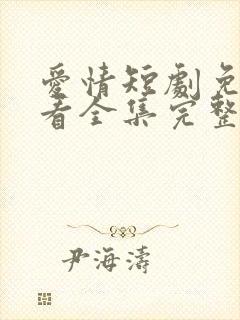 愛情短劇免
看全集完整
尹海濤